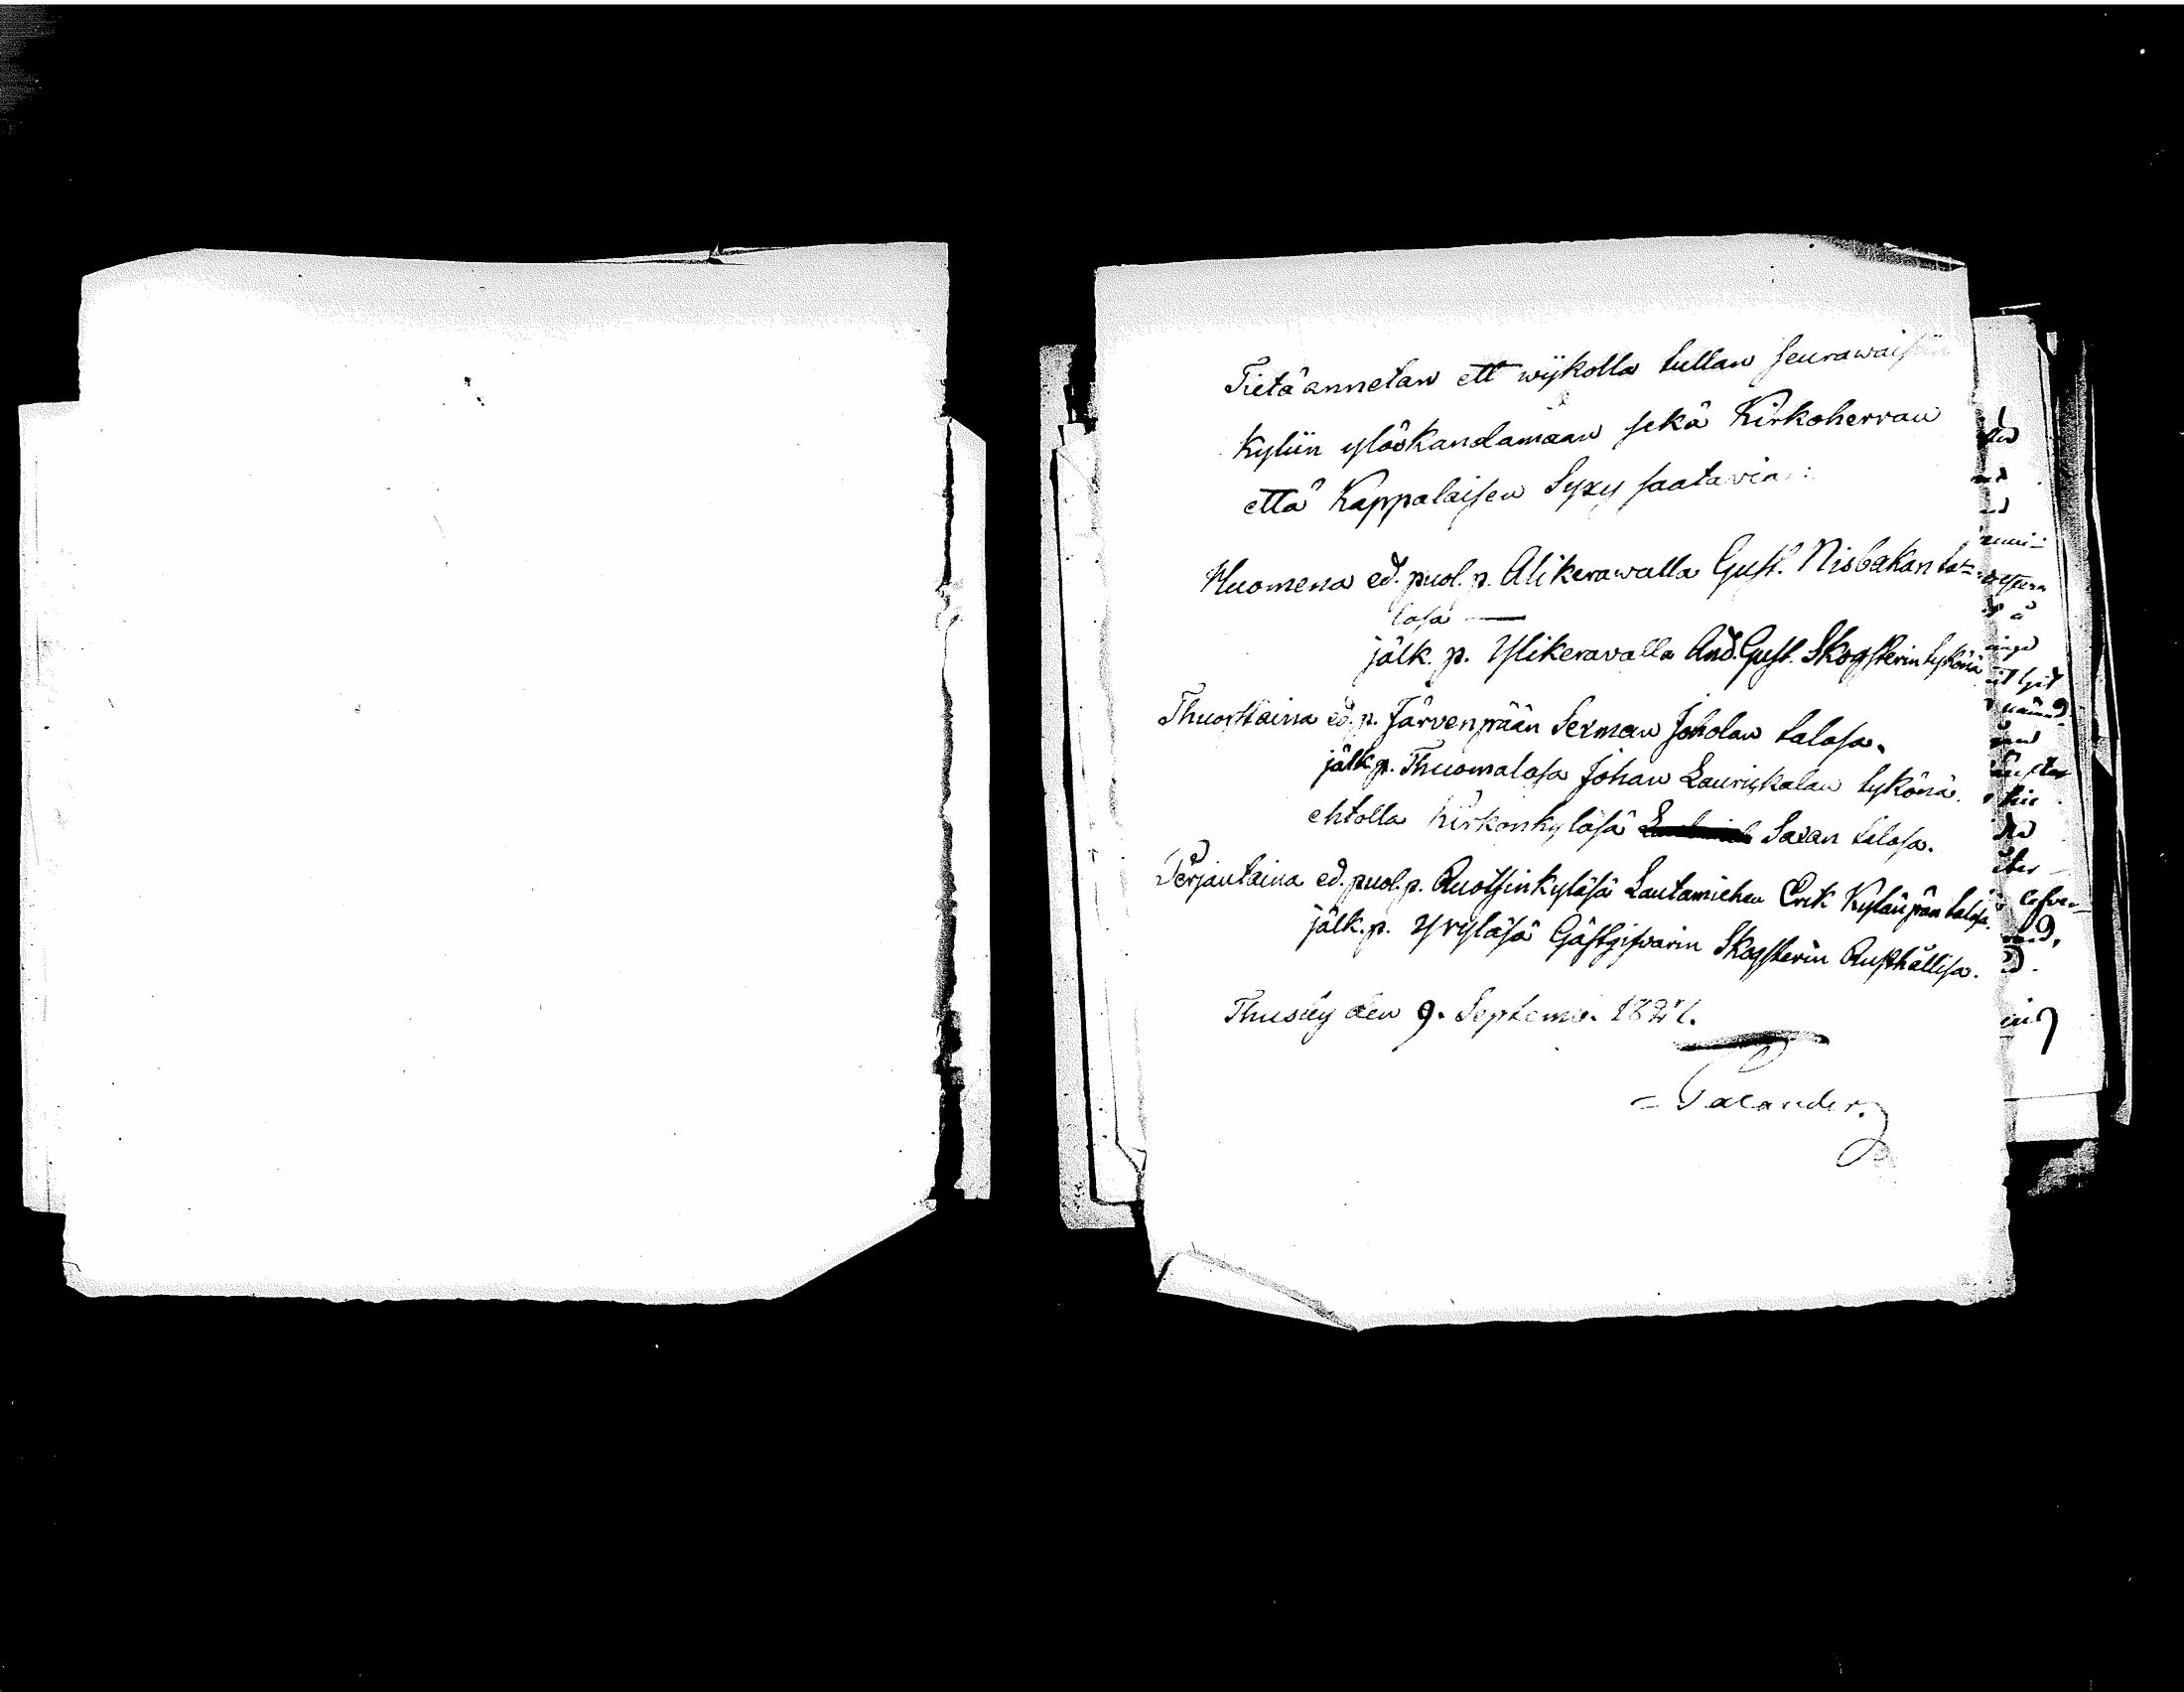 Tietä annetan ett wijkolla tullan seurawaisiin
Kyliin ylöskandamaan sekä Kirkoherran
että Kappalaisen Syxy saatavia:
Huomena ed. puol. p. Alikerawalla Gust. Nisbakan ta=
losa —
jälk. p. Ylikeravalla And. Gust. Skogsterin tykönä
Thuorstaina ed. p. Järvenpään Sexman Joholan talosa.
jälk p. Thuomalasa Johan Lauriskalan tykönä.
ehtolla Kirkonkyläsä Saxan talosa.
Perjantaina ed. puol. p. Ruotsinkyläsä Lautamiehen Erik Kylänpän talosa.
jälk. p. Yryläsä Gästgifvarin Skogsterin Rusthållisa.
Thusby den 9. Septemb. 1827.
Palander.